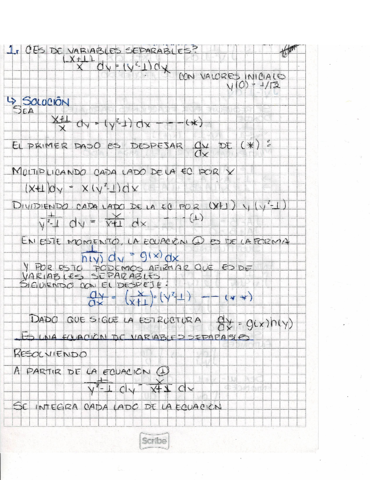 1. ¿ES DE VARIABLES SEPARABLES?
(x+1)/x dy = (y²-1) dx
CON VALORES INICIALES
y(0) = 1/√2
↳ SOLUCIÓN
SEA
x+1/x dy = (y²-1) dx --- (*)
EL PRIMER PASO ES DESPEJAR dy/dx DE (*) :
MULTIPLICANDO CADA LADO DE LA EC POR X
(x+1)dy = x(y²-1)dx
DIVIDIENDO CADA LADO DE LA EC POR (x+1) y (y²-1)
1/y²-1 dy = x/x+1 dx --- (1)
EN ESTE MOMENTO, LA ECUACIÓN ① ES DE LA FORMA
1/h(y) dy = g(x) dx
Y POR ESTO PODEMOS AFIRMAR QUE ES DE
VARIABLES SEPARABLES
SIGUIENDO CON EL DESPEJE:
dy/dx = (x/x+1)·(y²-1) --- (**)
DADO QUE SIGUE LA ESTRUCTURA dy/dx = g(x)h(y)
ES UNA ECUACIÓN DE VARIABLES SEPARABLES
RESOLVIENDO
A PARTIR DE LA ECUACIÓN ①
1/y²-1 dy = x/x+1 dx
SE INTEGRA CADA LADO DE LA ECUACIÓN
Scribe